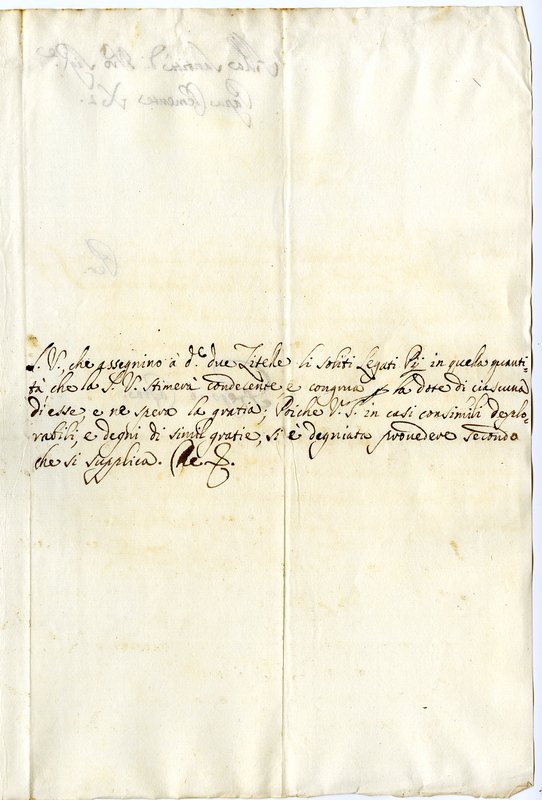 S. V., che assegnino à d.e due Zitelle li soliti Legati Pij in quella quanti-
tà che la S. V. stimerà condecente e congrua p la dote di ciascuna
di esse, e ne spera la gratia, Poiche V. S. in casi consimili deplo-
rabili, e degni di simili gratie, si è degniata provedere secondo
che si supplica. Che